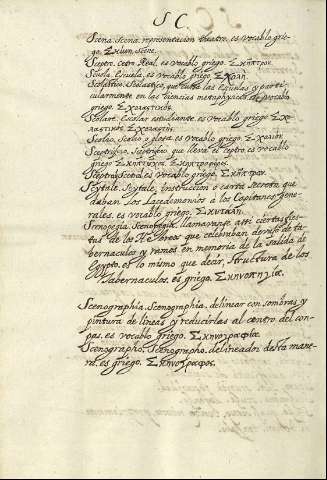 S C.
Scena. Scena. representacion theatro. es vocablo grie-
go. Σκηνη. Scene.
Sceptro. cetro Real. es vocablo griego. Σκήπτρον.
Scuola. Escuela. es vocablo griego. Σχολή.
Scolastico. Scolastico, que las Escuelas y parti-
cularmente en las ciencias metaphysicas es vocablo
griego. Σχολαστικός.
Scolare. Escolar estudiante. es vocablo griego. Σχο-
λαστικὸς. Σχολαστὴς.
Scolio. Scolio o glosa. es vocablo griego. Σχολιόν.
Sceptrifero. Sceptrifero. que lleva el ceptro. es vocablo
griego. Σκηπτροφόρος.
es vocablo griego. Σκῆπτρον.
Scytale. Scytale. instruccion o carta secreta que
daban los Lacedemonios a los Capitanes gene-
rales. es vocablo griego. Σκυτάλη.
Scenopegia. llamavanse assi ciertas fies-
tas de los Hebreos que celebraban debaxo de ta-
bernaculos y ramos en memoria de la salida de
Egypto. es lo mismo que dezir Structura de los
Tabernaculos. es griego. Σκηνοπηγία.
Scenographia. Scenographia. delinear con sombras y
pintura de lineas y reducirlas al centro del con-
pas. es vocablo griego. Σκηνογραφία.
Scenographo. Scenographo. delineador desta mane-
ra. es griego. Σκηνογράφος.